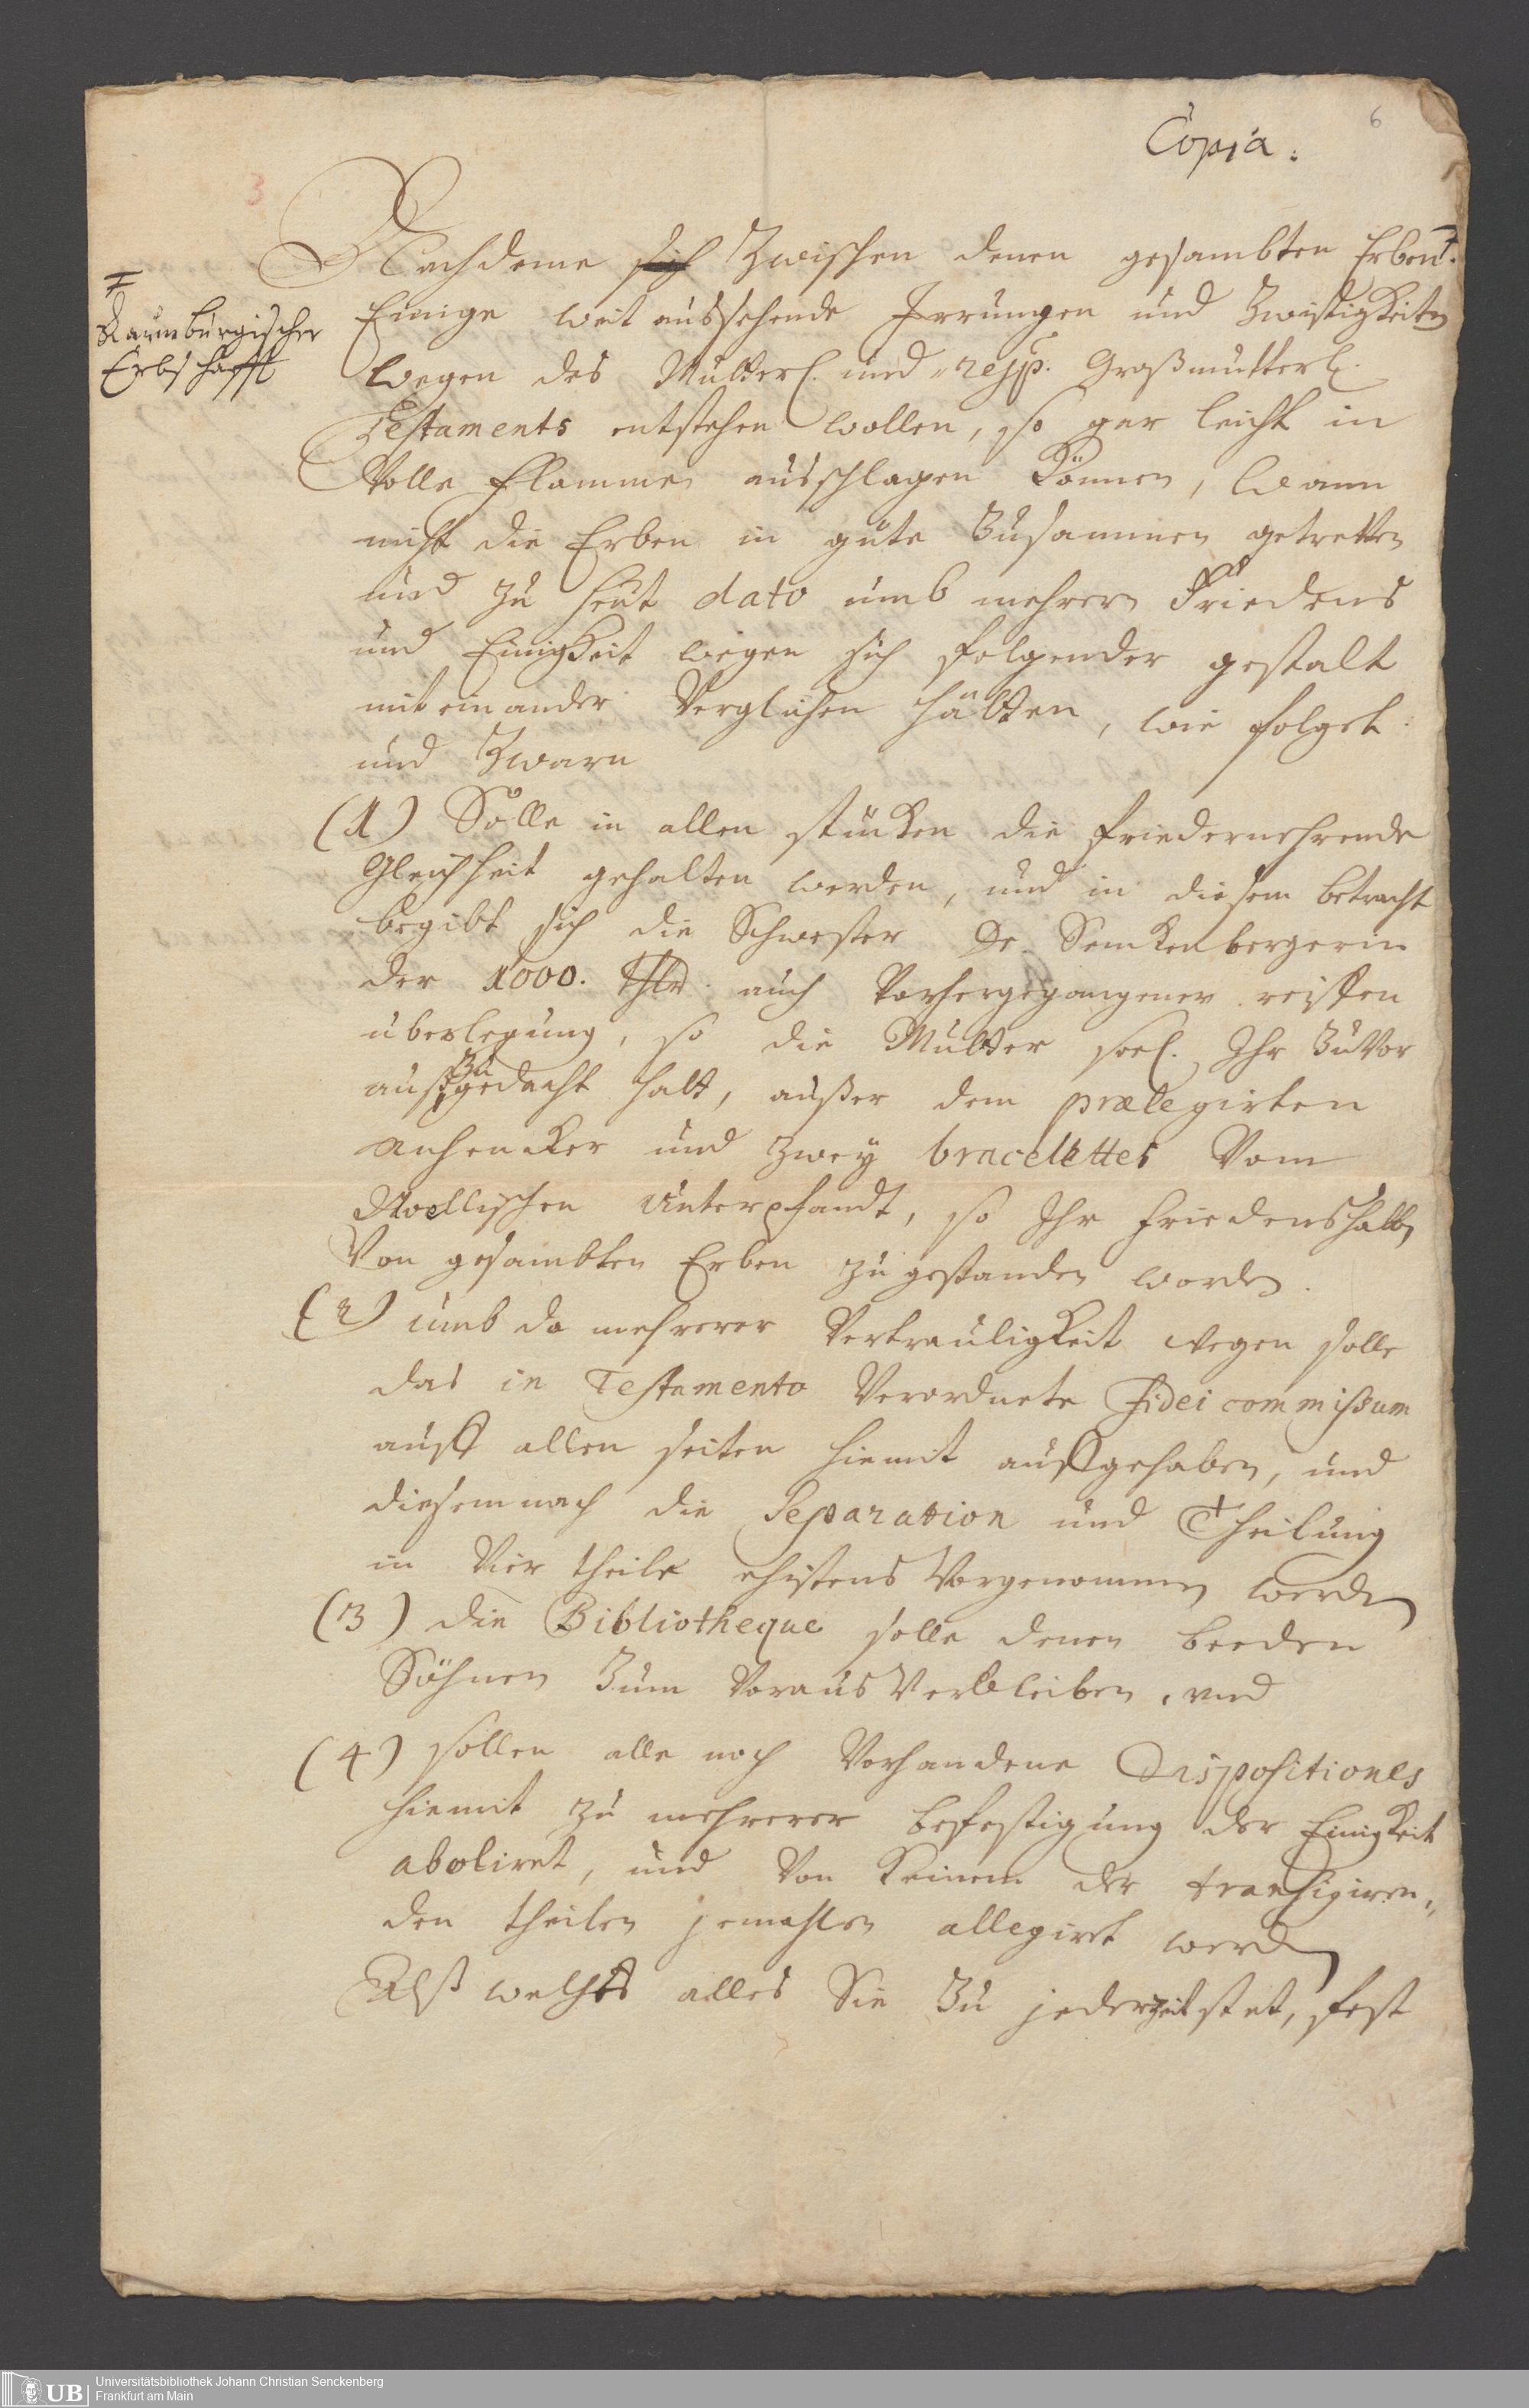 Copia.
6
3
Nachdeme sich Zwischen denen gesambten Erben ǂ.
ǂ
Naumburgischer
Erbschafft
Einige weit aussehende Irrungen und Zwistigkeiten
wegen des Mütterl. und resp. Großmütterl.
Testaments entstehen wollen, so gar leicht in
Volle Flammen ausschlagen können, Wann
nicht die Erben in güte Zusammen getretten
und zu heut dato umb mehrern Friedens
und Einigkeit wegen sich folgender gestalt
mit einander Verglichen hätten, wie folget:
und Zwarn
(1) Solle in allen stücken die friedernehrende
Gleichheit gehalten werden, und in diesem betracht
begibt sich die Schwester Dr. Senckenbergerin
der 1000. Thlr. auch Vorhergegangener reiffen
überlegung, so die Mutter seel. Ihr Zuvor
auszugedacht hatt, außer dem prælegirten
Anhencker und zwey bracelettes Vom
Noellischen Unterpfandt, so Ihr Friedenshalb,
Von gesambten Erben zugestanden worden.
(2) umb da mehrerer Vertrauligkeit wegen solle
das in Testamento Verordnete Fidei commissum
auff allen seiten hiemit auffgehaben, und
diesemnach die Separation und Theilung
in Vier theile ehistens Vorgenommen werden
(3) die Bibliotheque solle denen beeden
Söhnen Zum Voraus Verbleiben, und
(4) sollen alle noch Vorhandene Dispositiones
hiemit zu mehrerer befestigung der Einigkeit
aboliret, und Von keinem der transigiren,,
den theilen jemahlen allegiret werden
Alß welches alles Sie Zu jederzeit stet, fest
UB
Universitätsbibliothek Johann Christian Senckenberg
Frankfurt am Main